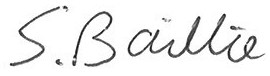 S. Baillie